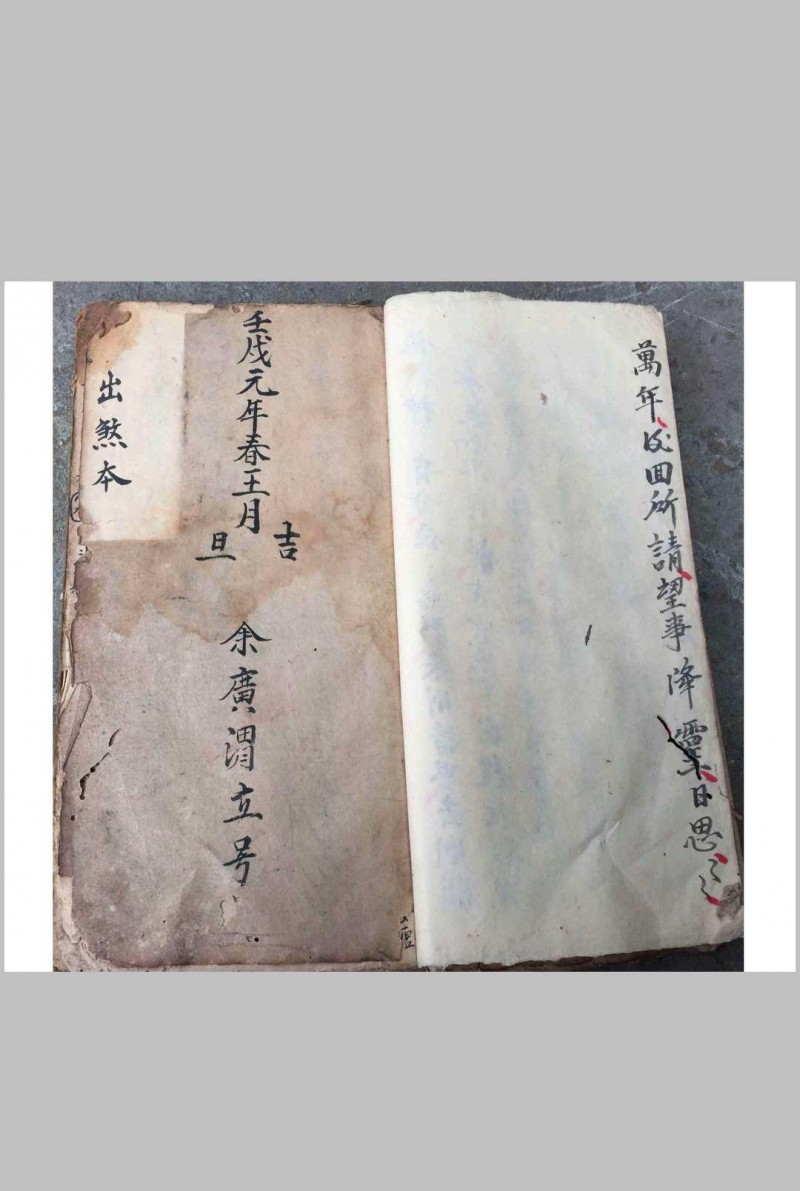 萬年 回所請望事降 日思
壬戌元年春王月
吉旦
余廣渭立号
出煞本